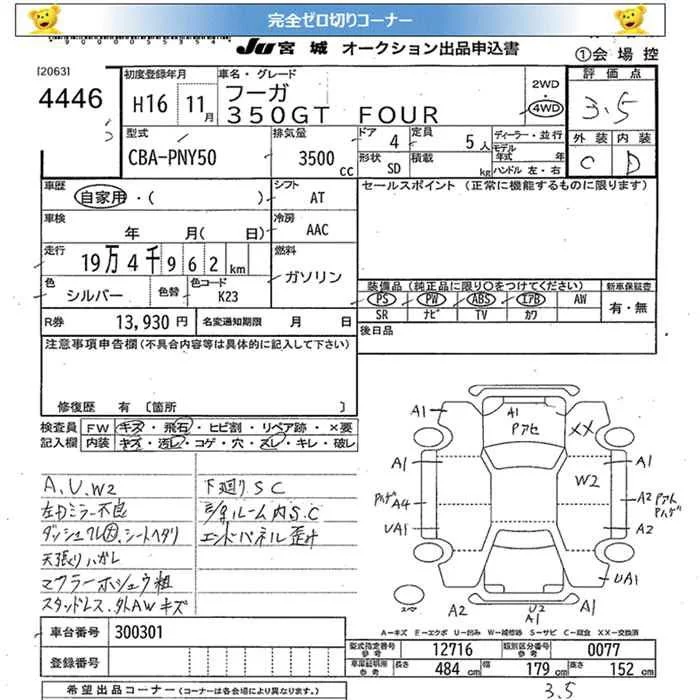 完全ゼロ切りコーナー
JU 宮城 オークション出品申込書
①会場控
[2063]
4446
初度登録年月
H16 11月
車名・グレード
フーガ
350GT FOUR
2WD
・
4WD
評価点
3.5
外装 内装
C D
型式
CBA-PNY50
排気量
3500 cc
ドア 4
定員 5人
形状 SD
積載 kg
ディーラー・並行
モデル年式 年
ハンドル 左・右
車歴
自家用・( )
シフト
AT
セールスポイント (正常に機能するものに限ります)
車検
年 月( 日)
冷房
AAC
走行
19万4千962km
燃料
ガソリン
色
シルバー
色替
色コード
K23
装備品 (純正品に限り○をつけてください)
新車保証書
PS PW ABS エアB AW
SR ナビ TV カワ
有・無
R券 13,930円
名変通知期限 月 日
後日品
注意事項申告欄(不具合内容等は具体的に記入して下さい)
修復歴 有 〔箇所 〕
検査員記入欄
FW キズ・飛石・ヒビ割・リペア跡・×要
内装 キズ・汚レ・コゲ・穴・スレ・キレ・破レ
A、U、W2
左ドミラー不良
ダッシュワレ大、シートヘタリ
天張りハガレ
マフラーホシュウ粗
スタッドレス、外AWキズ
下廻りSC
エンドパネル歪み
A1
A1
Pアセ
XX
A1
A1
W2
Pハゲ A4
A2
Pハゲ
UA1
A2
UA1
A2
U2
A1
A1
A-キズ E-エクボ U-凹み W-補修跡 S-サビ C-腐食 XX-交換済
車台番号 300301
登録番号
型式指定番号 参考 12716
類別区分番号 参考 0077
車庫証明用 参考 長さ 484 cm 幅 179 cm 高さ 152 cm
希望出品コーナー (コーナーは各会場により異なります。)
3.5